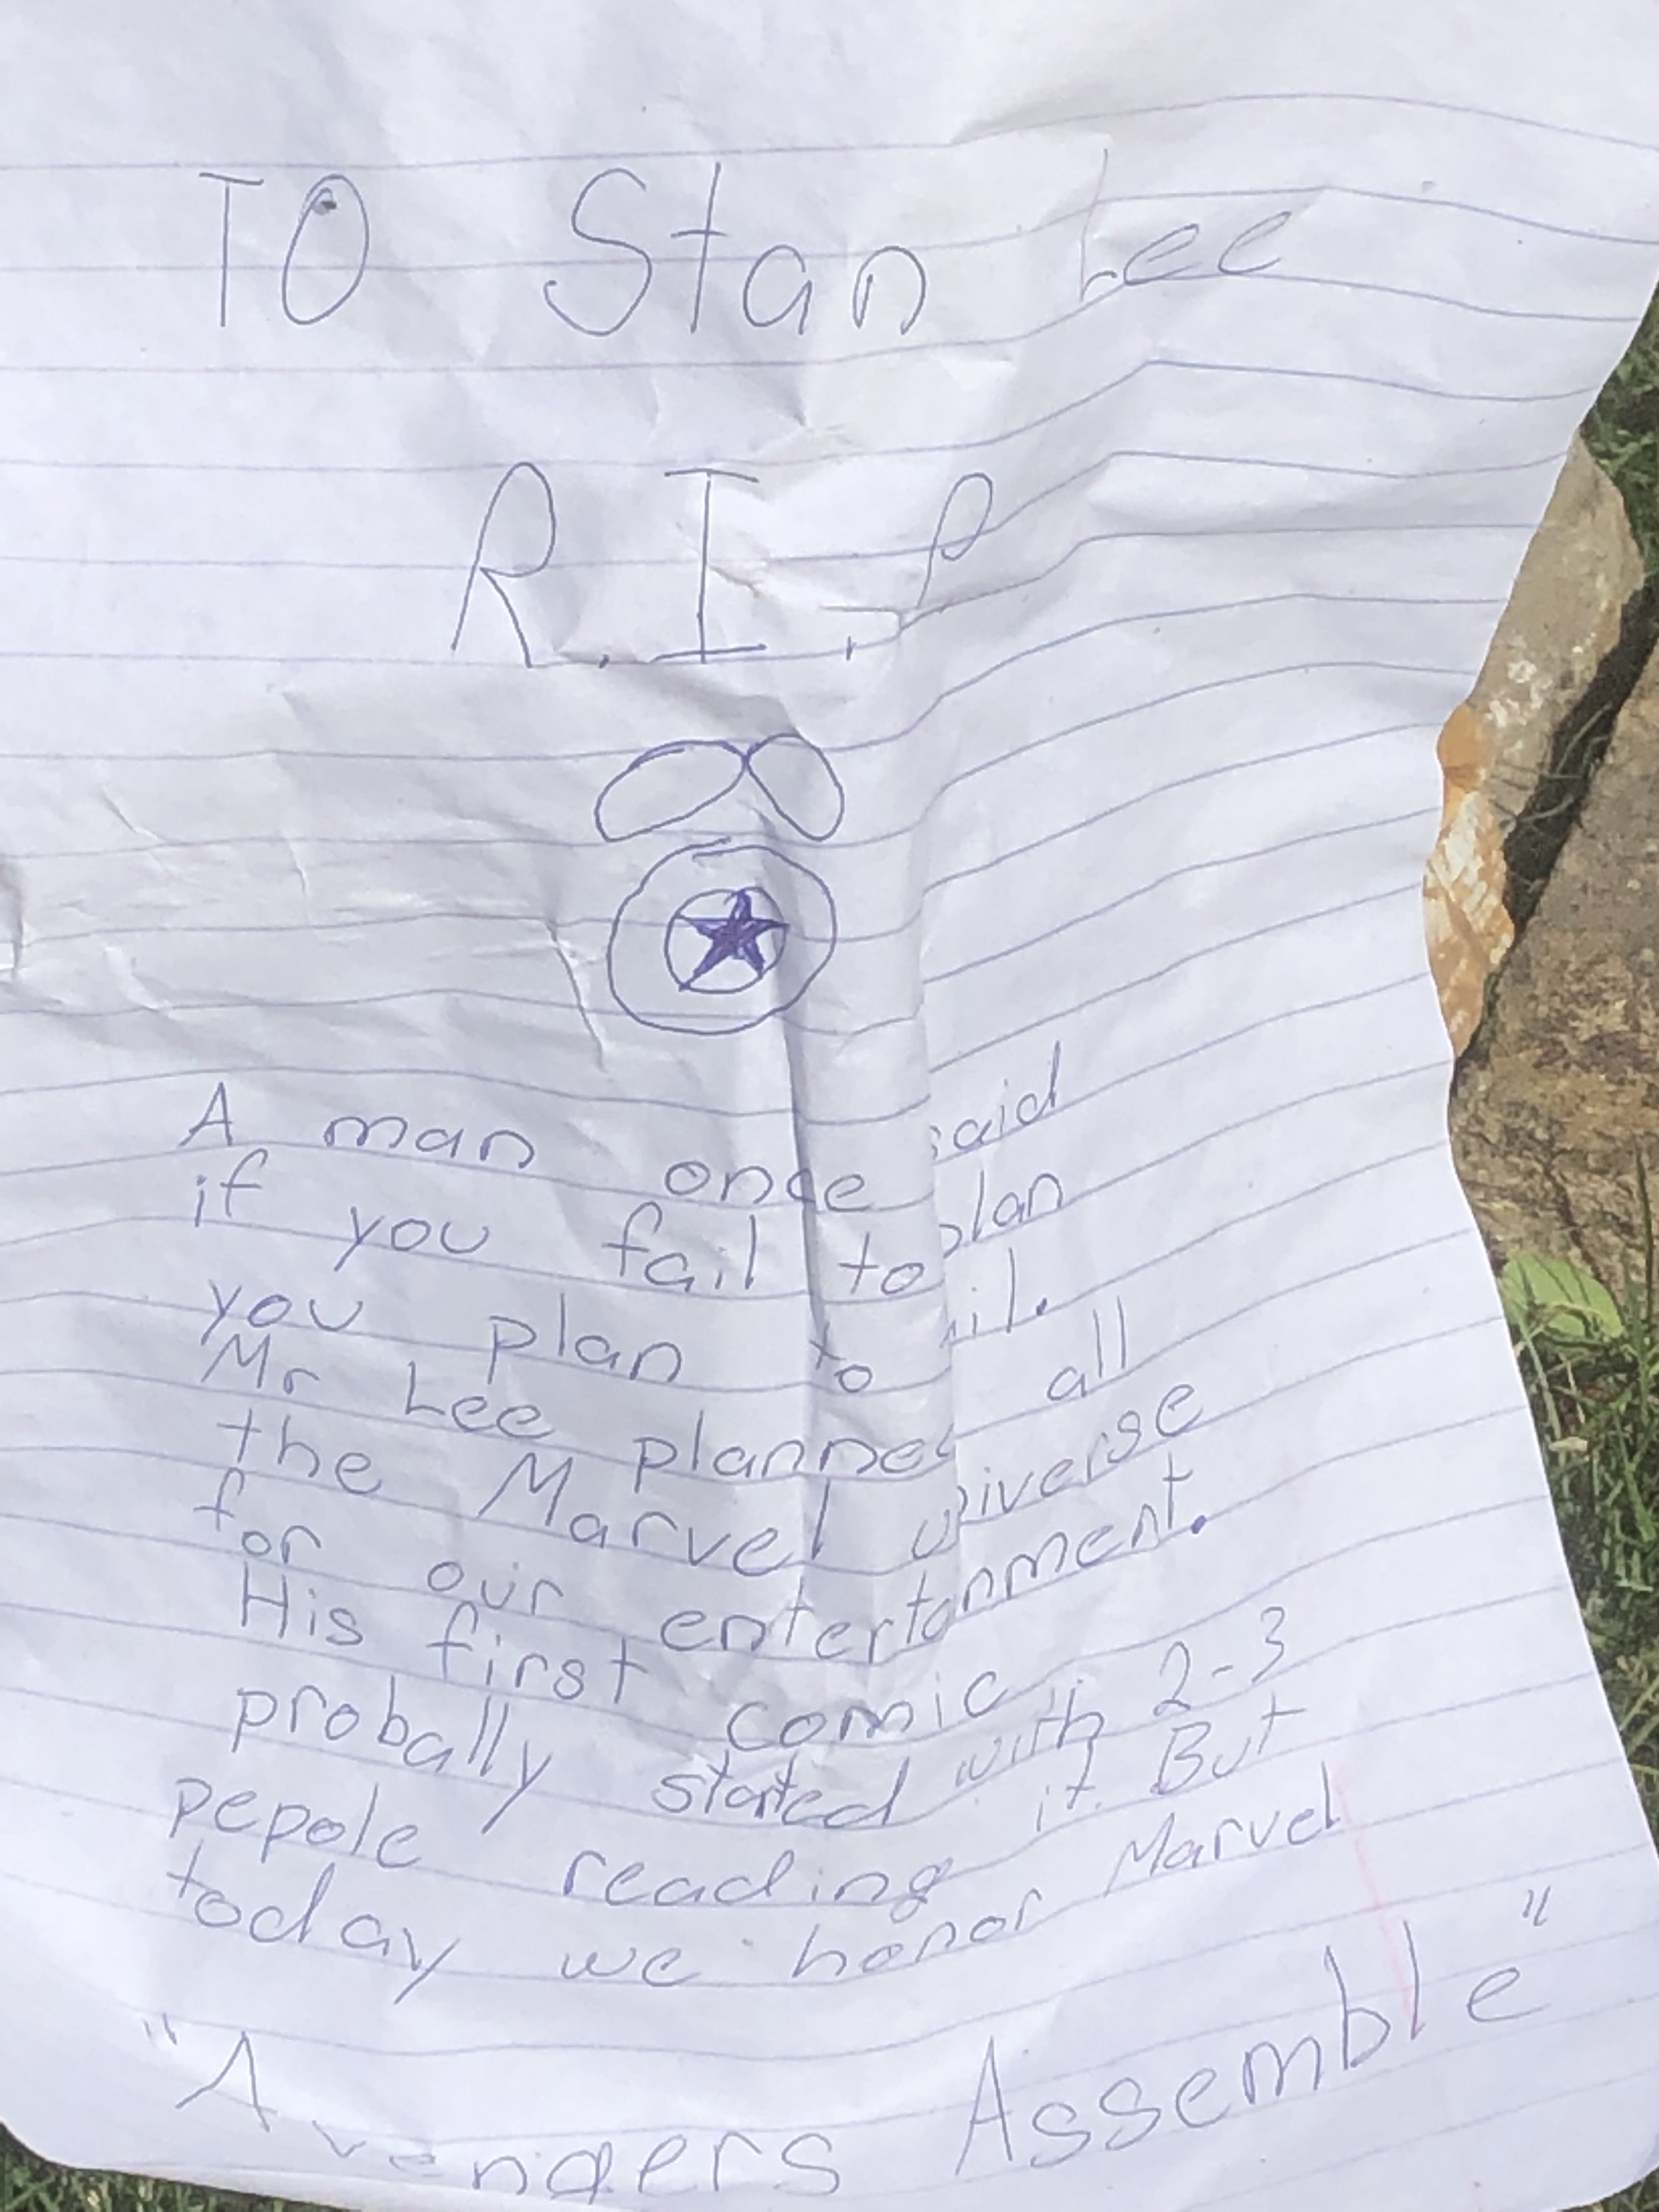 TO Stan Lee
R.I.P
A man once said
if you fail to plan
you plan to fail.
Mr Lee planned all
the Marvel universe
for our entertanment.
His first comic
probally started with 2-3
pepole reading it. But
today we honor Marvel
"Avengers Assemble"